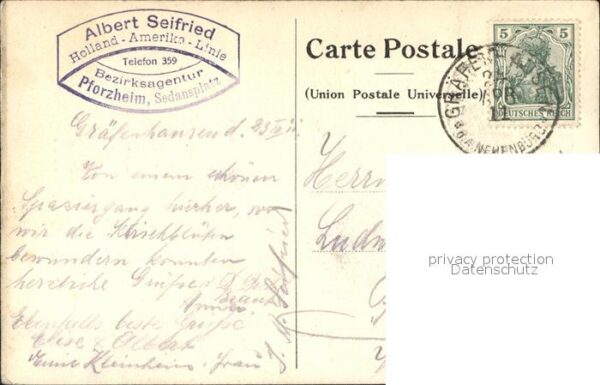 Albert Seifried
Holland - Amerika - Linie
Telefon 359
Bezirksagentur
Pforzheim, Sedansplatz
Carte Postale
(Union Postale Universelle)
5 5
DEUTSCHES REICH
GRÄFENHAUSEN
NEUENBÜRG
Gräfenhausen d.
Von einem schönen
Spaziergang hierher, wo
wir die Kirschblüten
bewundern konnten
herzliche Grüsse
Ebenfalls beste Grüsse
Elise & Albert
Kleinheim, Frau
Seifried
Herrn
Ludw
privacy protection
Datenschutz